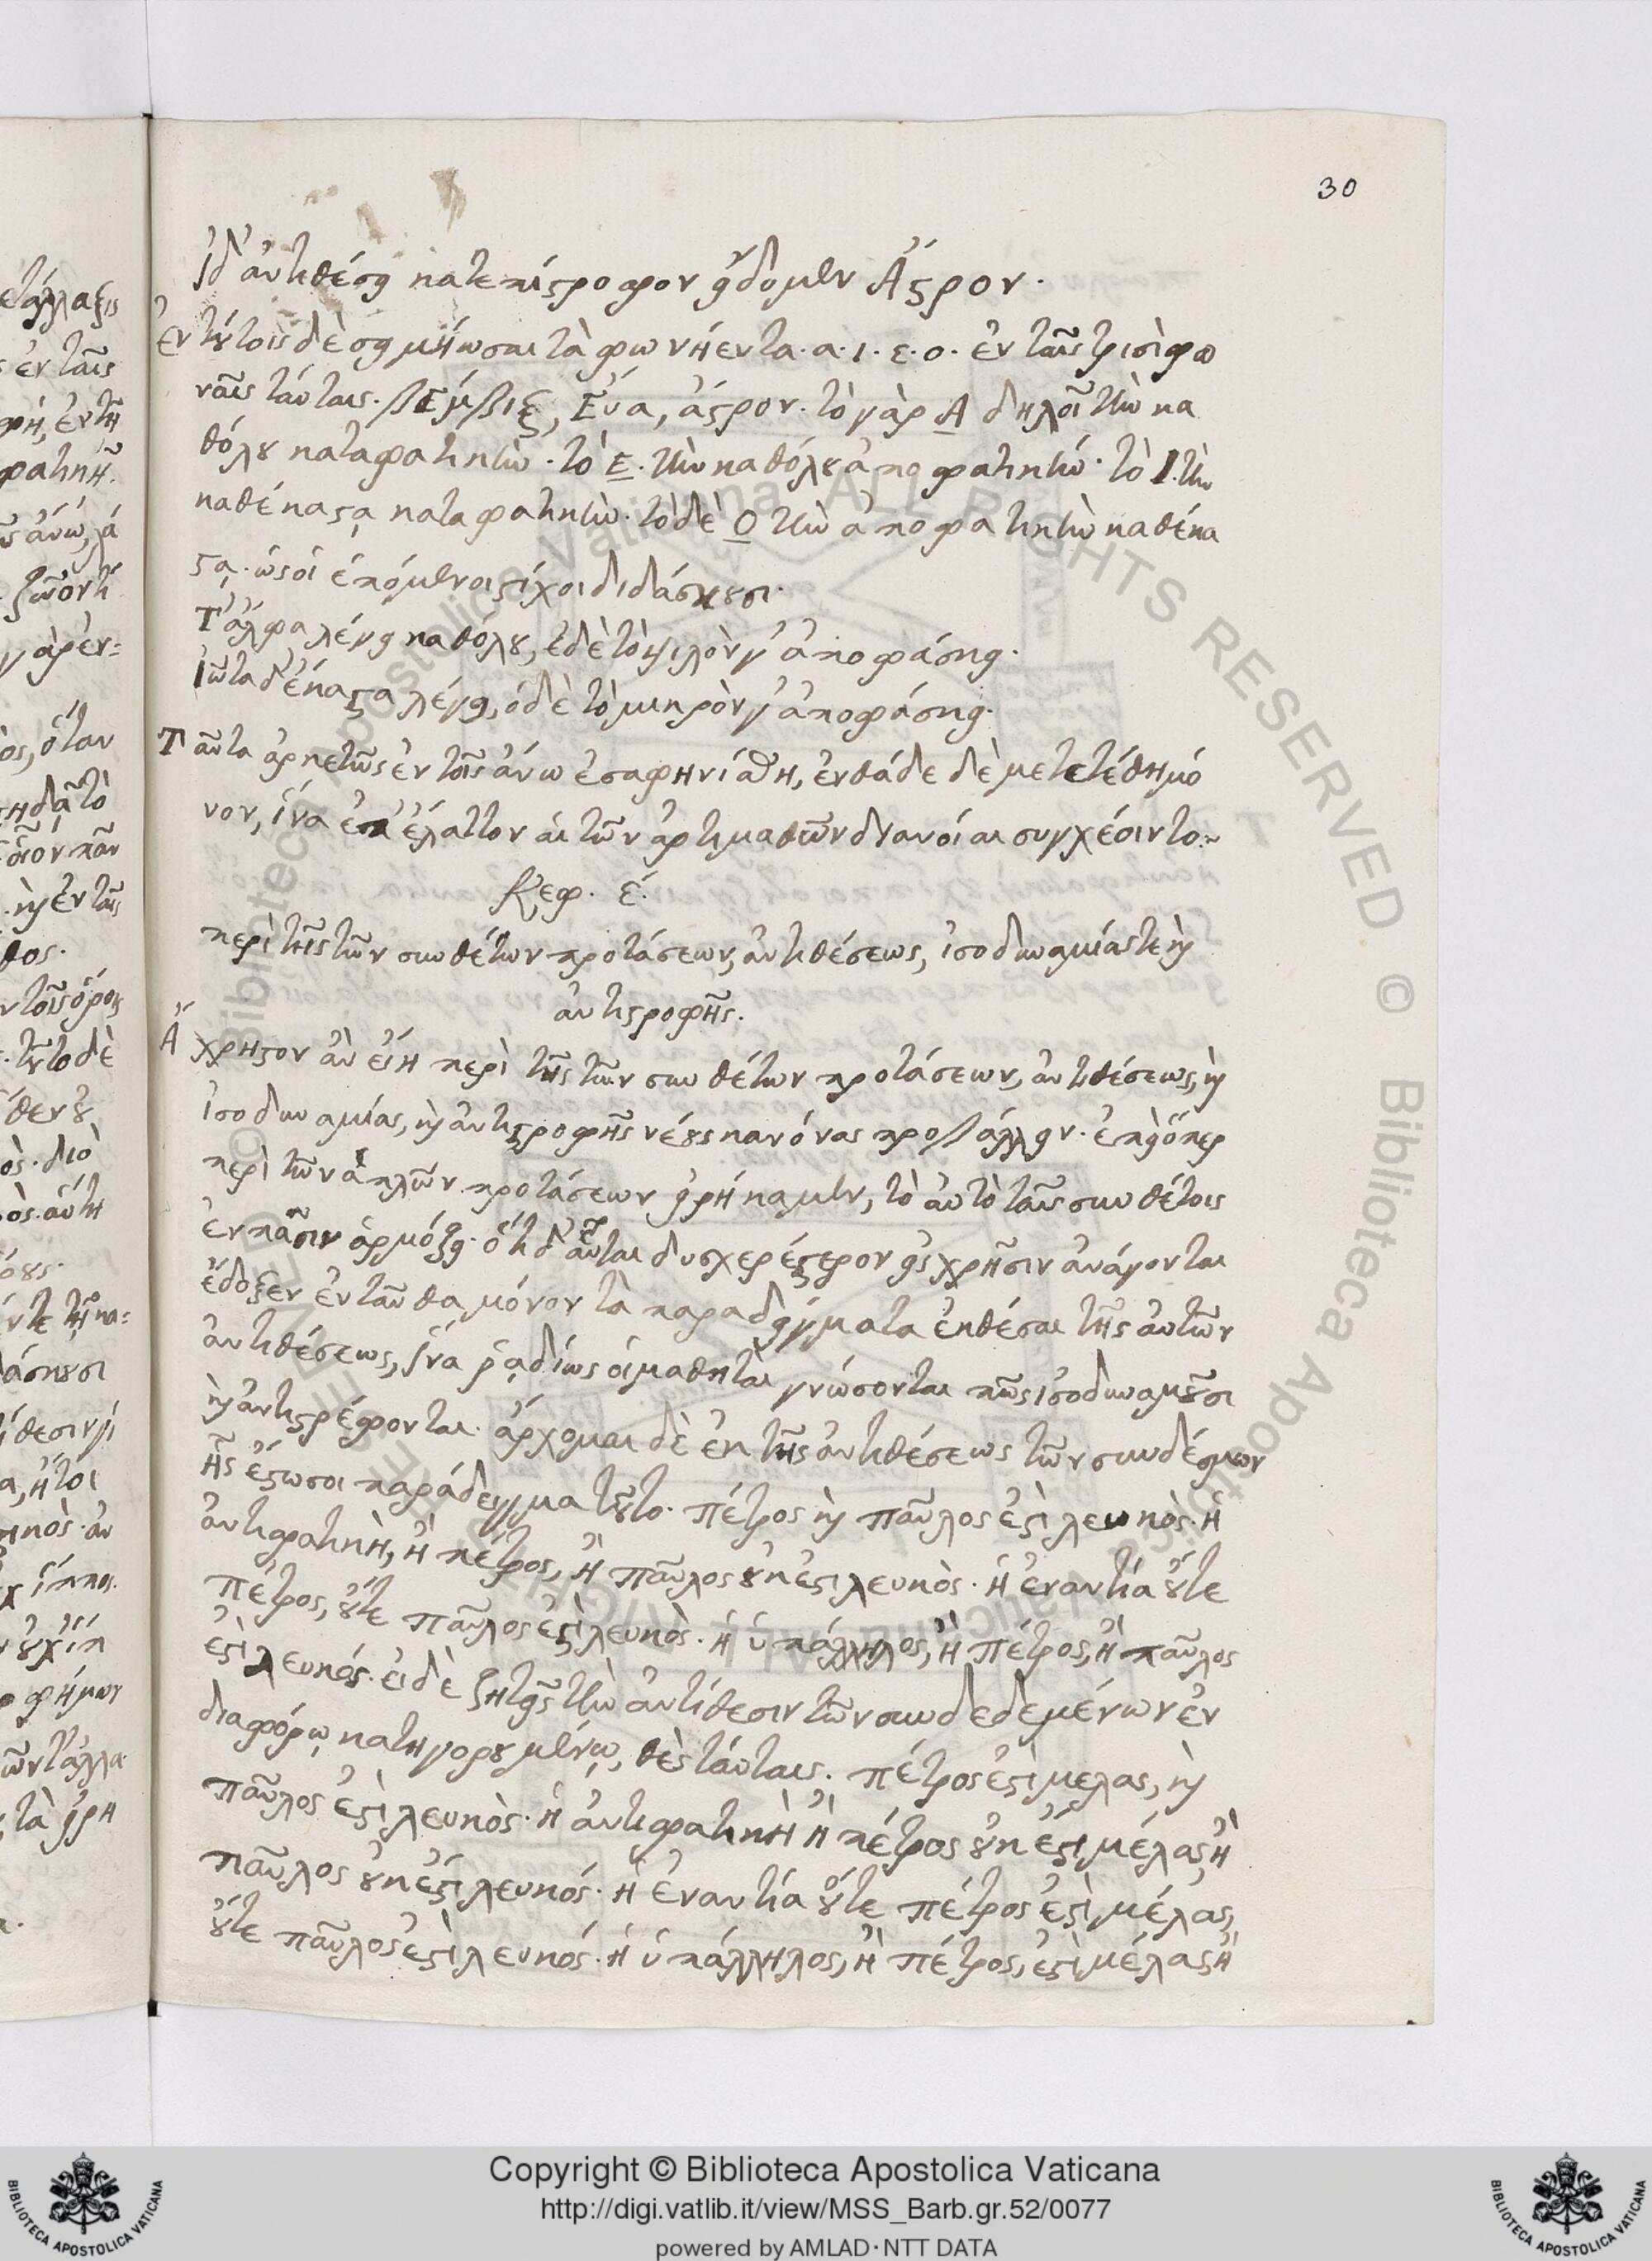 30
ἰδ' ἀντιθέσει κατεπίστροφον εἴδομεν Ἄστρον.
ἐν τούτοις δὲ σημήωσαι τὰ φωνήεντα. α. ι. ε. ο. ἐν ταῖς τρισὶ φω
ναῖς ταύταις. βέμβιξ, Εὔα, ἄστρον. τὸ γὰρ Α δηλοῖ τὴν κα
θόλου καταφατικήν. τὸ Ε. τὴν καθόλου ἀποφατικήν. τὸ Ι. τὴν
καθέκαστα καταφατικήν. τὸ δὲ Ο τὴν ἀποφατικὴν καθέκα
στα. ὡς οἱ ἑπόμενοι στίχοι διδάσκουσι.
Τ' ἄλφα λέγει καθόλου, ἐδὲ τὸ ψιλὸν γ' ἀποφάσκει.
Ἰῶτα δ' ἕκαστα λέγει, ὁδὲ τὸ μικρὸν γ' ἀποφάσκει.
Ταῦτα ἀρκετῶς ἐν τοῖς ἄνω ἐσαφηνίσθη, ἐνθάδε δὲ μετετέθη μό
νον, ἵνα ἐπ' ἔλαττον αἱ τῶν ἀρτιμαθῶν διάνοίαι συγχέοιντο:~
Κεφ. έ.
περὶ τῆς τῶν συνθέτων προτάσεων, ἀντιθέσεως, ἰσοδυναμίας τε καὶ
ἀντιστροφῆς.
Ἄχρηστον ἂν εἴη περὶ τῆς τῶν συνθέτων προτάσεων, ἀντιθέσεως, καὶ
ἰσοδυναμίας, καὶ ἀντιστροφῆς νέους κανόνας προβάλλειν. ἐπεὶ ὅπερ
περὶ τῶν ἁπλῶν προτάσεων εἰρήκαμεν, τὸ αὐτὸ ταῖς συνθέτοις
ἐν πᾶσιν ἁρμόζει. ὅτι δ' αὗται δυσχερέστερον εἰς χρῆσιν ἀνάγονται
ἔδοξεν ἐνταῦθα μόνον τὰ παραδείγματα ἐκθέσαι τῆς αὐτῶν
ἀντιθέσεως, ἵνα ῥαδίως οἱ μαθηταὶ γνώσονται πῶς ἰσοδυναμοῦσι
καὶ ἀντιστρέφονται. ἄρχομαι δὲ ἐκ τῆς ἀντιθέσεως τῶν συνδέσμων
ἧς ἔστω σοι παράδειγμα τοῦτο. πέτρος καὶ παῦλος ἐστὶ λευκὸς. ἡ
ἀντιφατικὴ, ἢ πέτρος, ἢ παῦλος οὐκ ἐστι λευκὸς. ἡ ἐναντία οὔτε
πέτρος, οὔτε παῦλος ἐστὶ λευκὸς. ἡ ὑπάλληλος, ἢ πέτρος, ἢ παῦλος
ἐστὶ λευκός. εἰ δὲ ζητεῖς τὴν ἀντίθεσιν τῶν συνδεδεμένων ἐν
διαφόρῳ κατηγορουμένῳ, θὲς ταύταις. πέτρος ἐστὶ μελας, καὶ
παῦλος ἐστὶ λευκὸς. ἡ ἀντιφατικὴ ἢ πέτρος οὐκ ἔστι μέλας, ἢ
παῦλος οὐκ ἔστι λευκός. ἡ ἐναντία οὔτε πέτρος ἐστὶ μέλας,
οὔτε παῦλος ἐστὶ λευκός. ἡ ὑπάλληλος, ἢ πέτρος, ἐστὶ μέλας ἢ
Copyright © Biblioteca Apostolica Vaticana
http://digi.vatlib.it/view/MSS_Barb.gr.52/0077
powered by AMLAD·NTT DATA